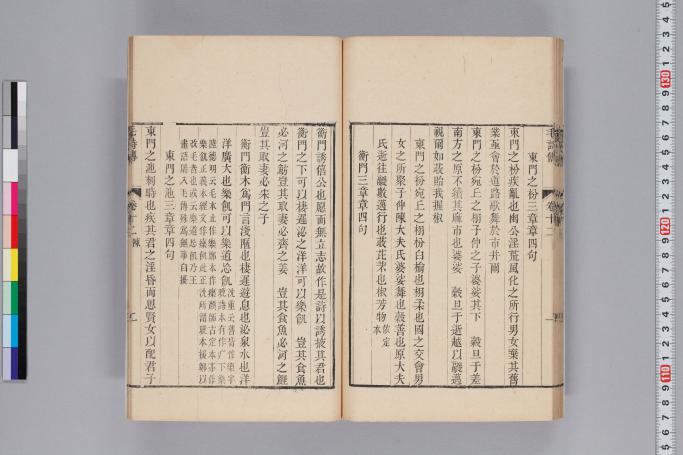 東門之枌三章章四句
東門之枌疾亂也幽公淫荒風化之所行男女棄其舊
業亟會於道路歌舞於市井爾
東門之枌宛丘之栩子仲之子婆娑其下 穀旦于差
南方之原不績其麻市也婆娑 穀旦于逝越以鬷邁
視爾如荍貽我握椒
東門之枌宛丘之栩枌白榆也栩柔也國之交會男
女之所聚子仲陳大夫氏婆娑舞也穀善也原大夫
氏逝往鬷數邁行也荍芘芣也椒芳物
衡門三章章四句
衡門誘僖公也愿而無立志故作是詩以誘掖其君也
衡門之下可以棲遲泌之洋洋可以樂飢 豈其食魚
必河之魴豈其取妻必齊之姜 豈其食魚必河之鯉
豈其取妻必宋之子
衡門衡木爲門言淺陋也棲遲遊息也泌泉水也洋
洋廣大也樂飢可以樂道忘飢
東門之池三章章四句
東門之池刺時也疾其君之淫昏而思賢女以配君子
毛詩傳
卷十二 陳